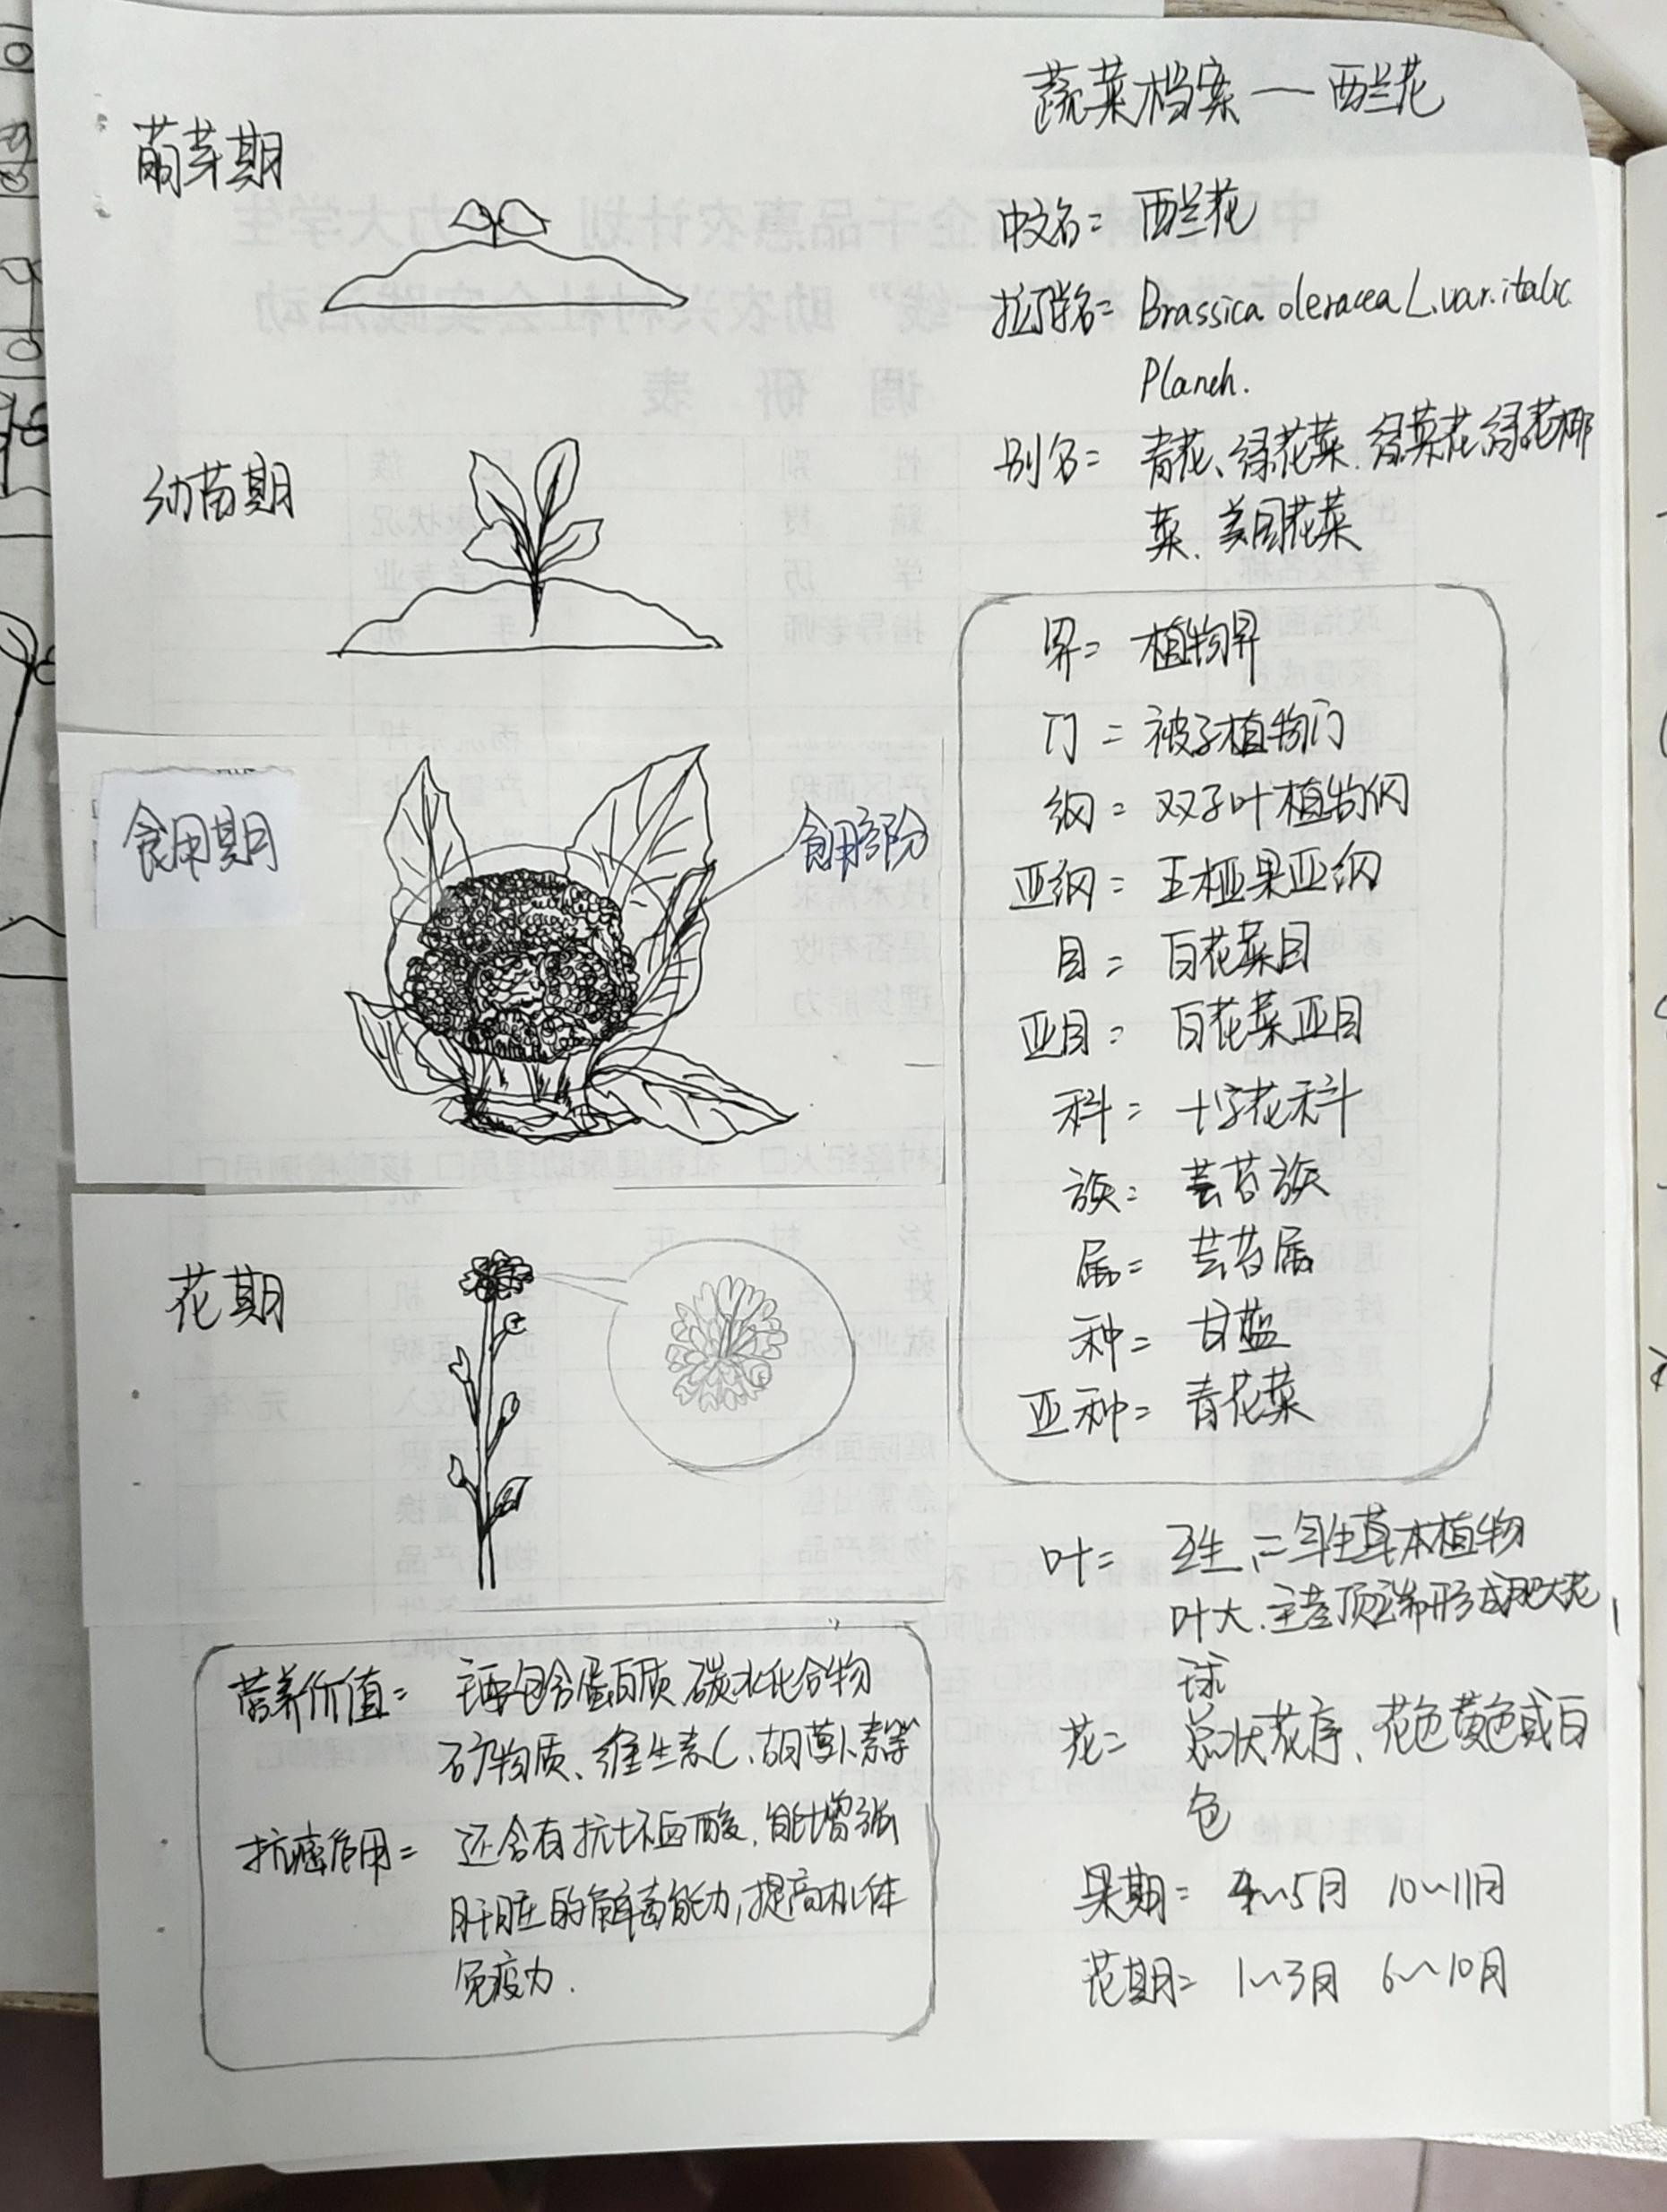 蔬菜档案一西兰花
萌芽期
中文名= 西兰花
拉丁学名= Brassica oleracea L.var.italic
Planch.
幼苗期
别名= 青花、绿花菜、绿菜花、绿花椰
菜、美国花菜
界= 植物界
门= 被子植物门
纲= 双子叶植物纲
亚纲= 五桠果亚纲
目= 白花菜目
亚目= 白花菜亚目
科= 十字花科
族= 芸苔族
属= 芸苔属
种= 甘蓝
亚种= 青花菜
食用期
食用部分
花期
叶= 互生、二年生草本植物
叶大、主茎顶端形成肥大花
球
花= 总状花序、花色黄色或白
色
果期= 4～5月 10～11月
花期= 1～3月 6～10月
营养价值= 主要包含蛋白质 碳水化合物
矿物质、维生素C、胡萝卜素等
抗癌作用= 还含有抗坏血酸,能增强
肝脏的解毒能力,提高机体
免疫力.
中国 企千品惠农计划 力大学生
一线”助农兴村社会实践活动
调研表